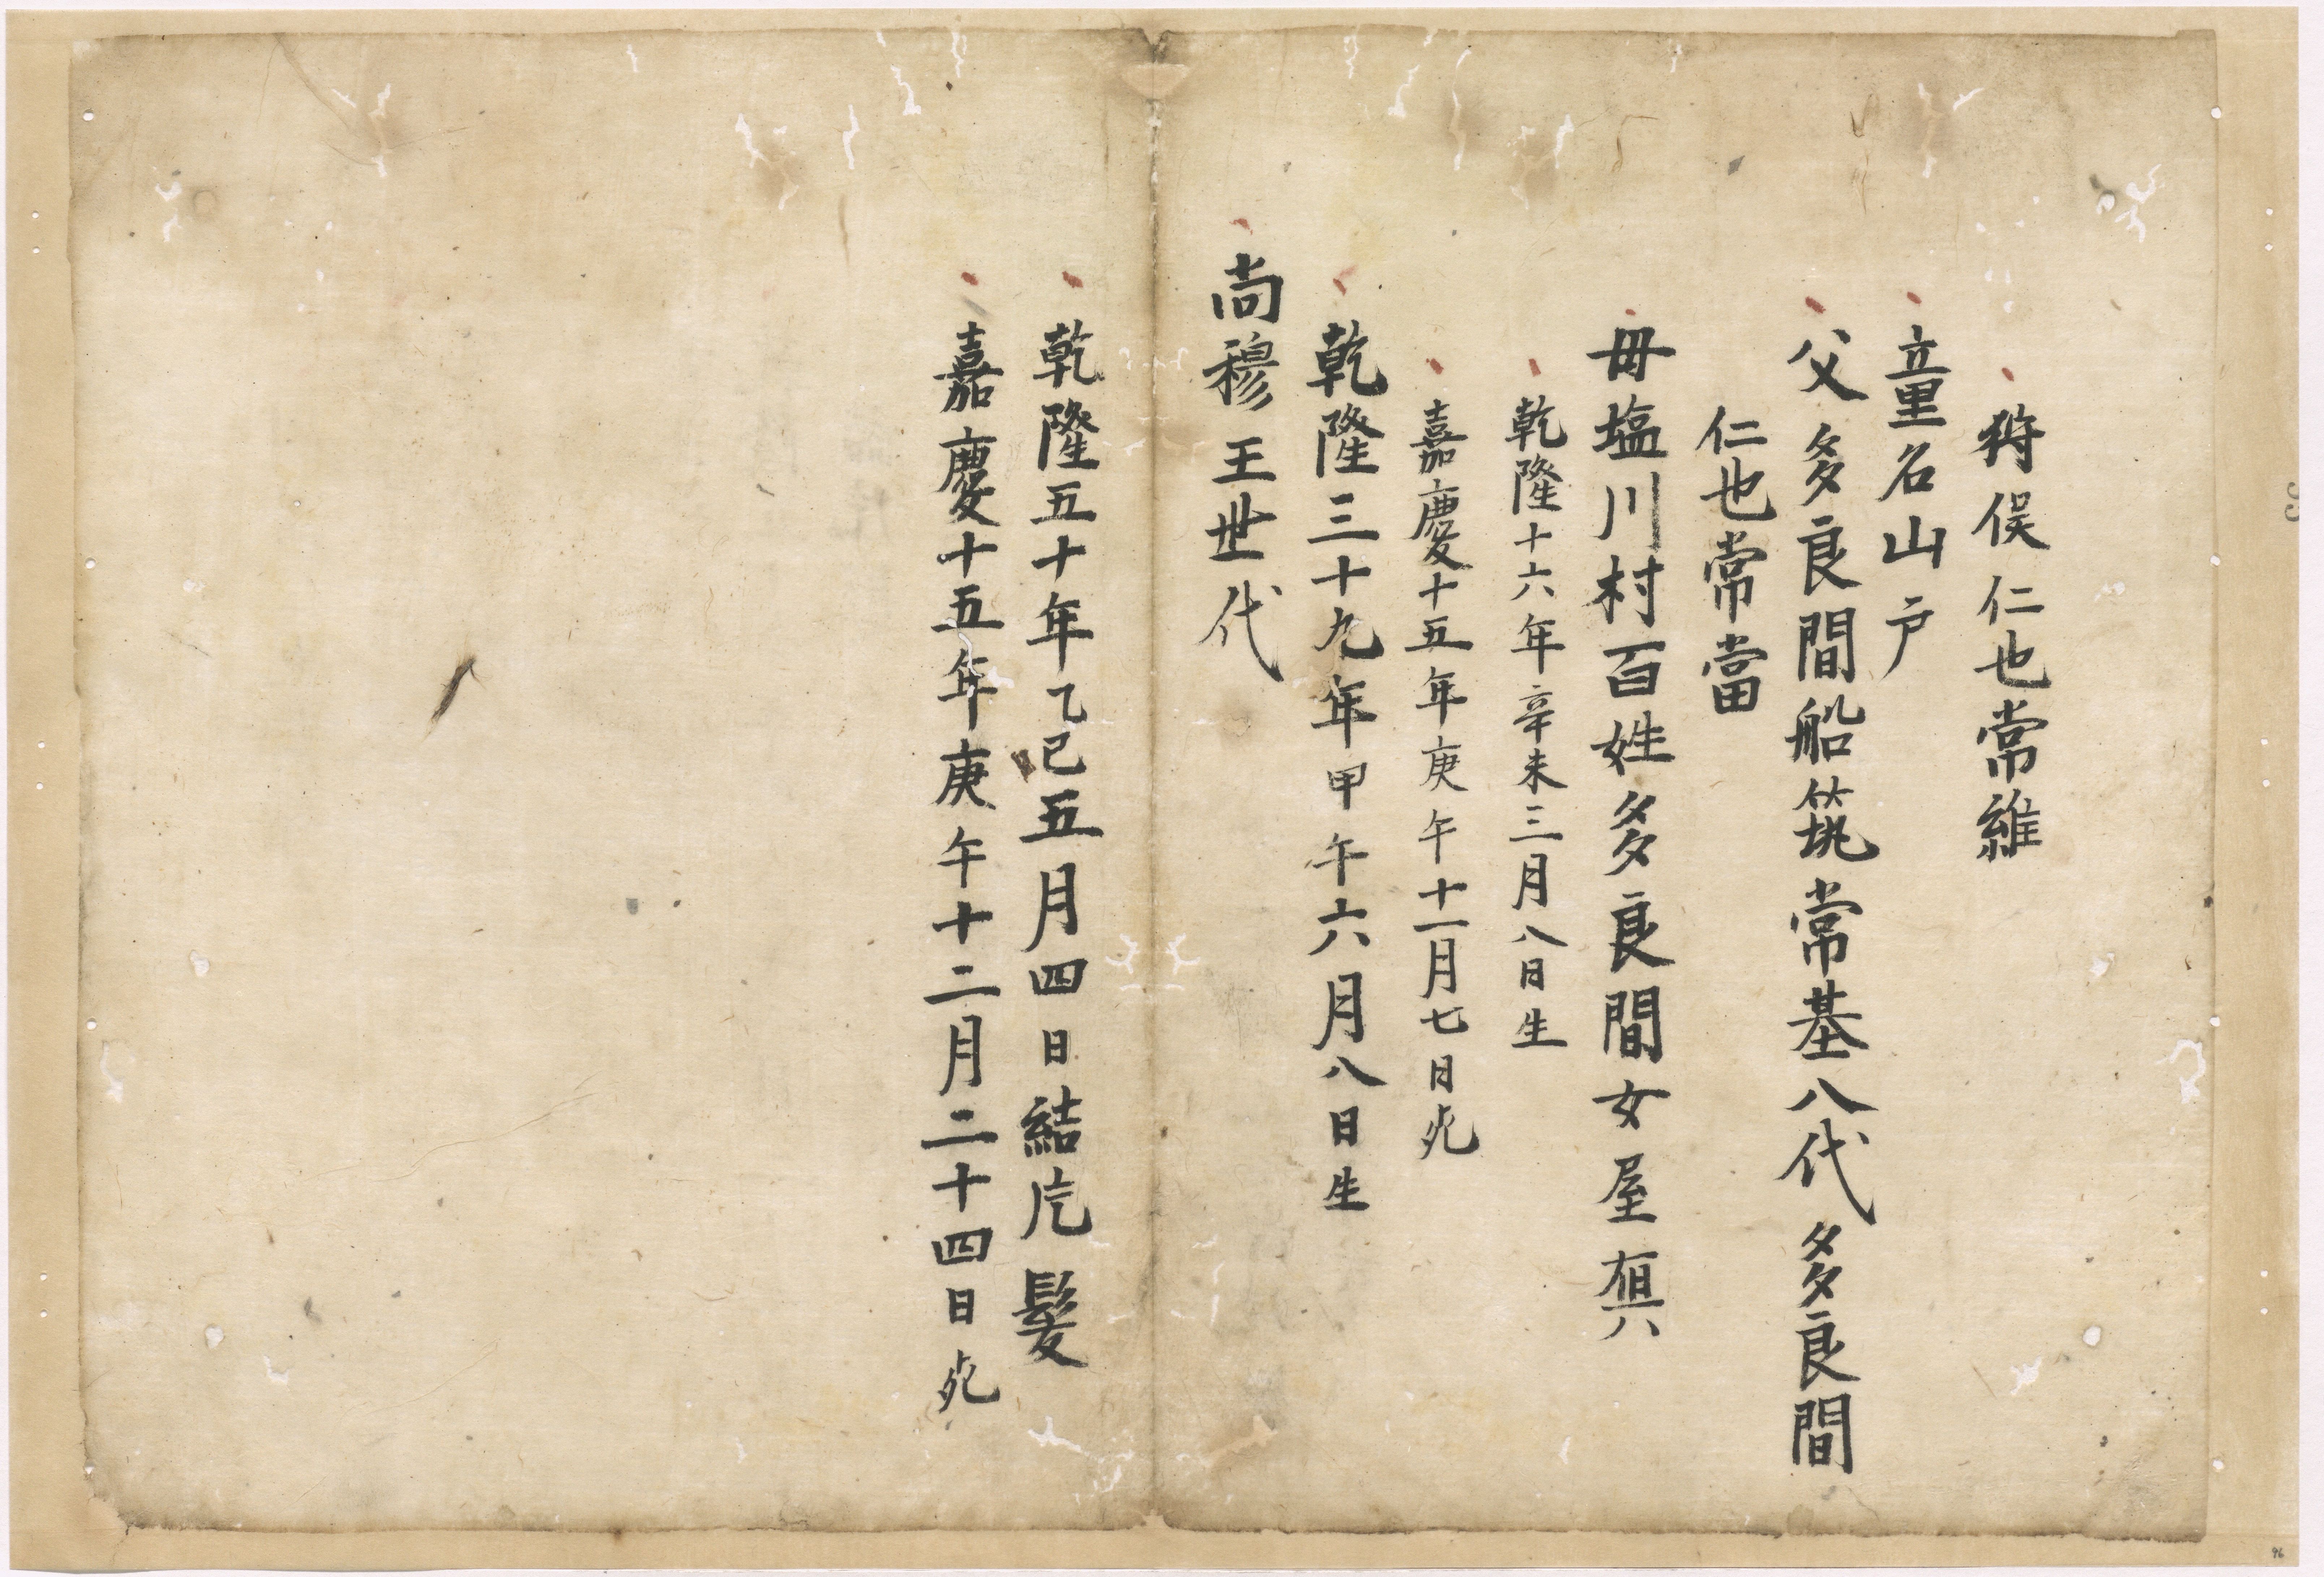 狩俣仁也常維
童名山戸
父多良間船筑常基八代多良間
仁也常當
毋塩川村百姓多良間女屋
乾隆十六年辛未三月八日生
嘉慶十五年庚午十一月七日死
乾隆三十九年甲午六月八日生
尚穆王世代
乾隆五十年乙巳五月四日結片髪
嘉慶十五年庚午十二月二十四日死